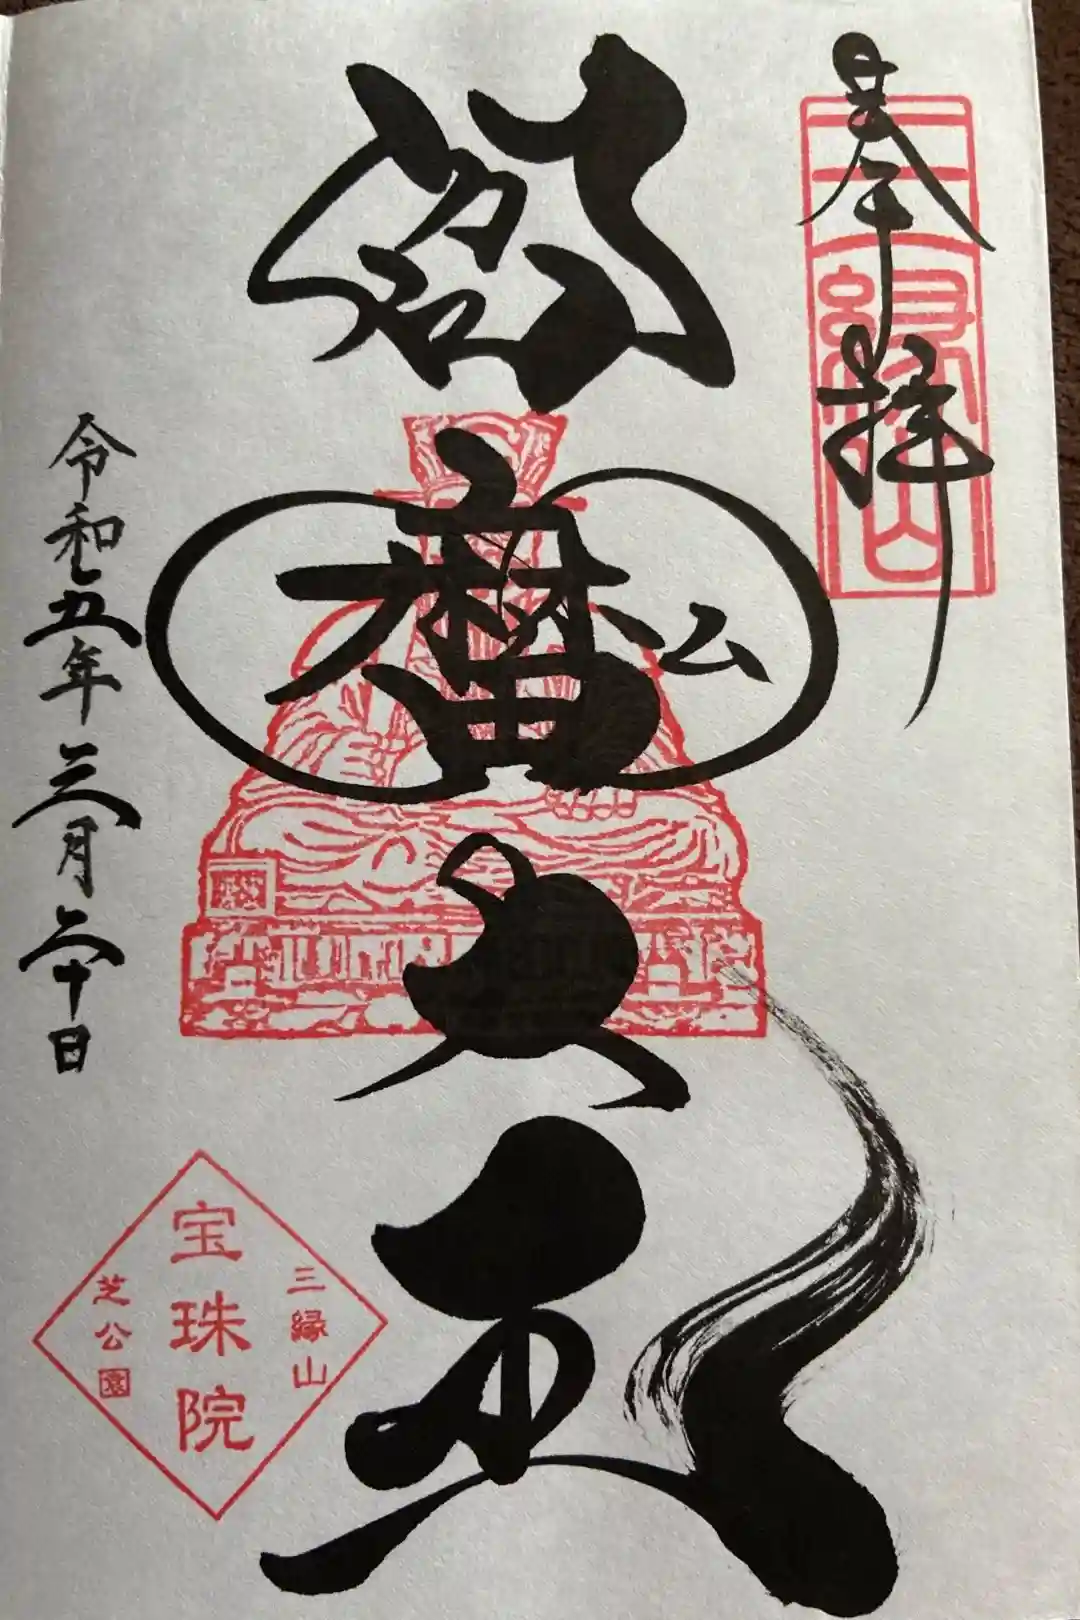 奉拝
三縁山
閻魔大王
令和五年三月二十日
三縁山
宝珠院
芝公園